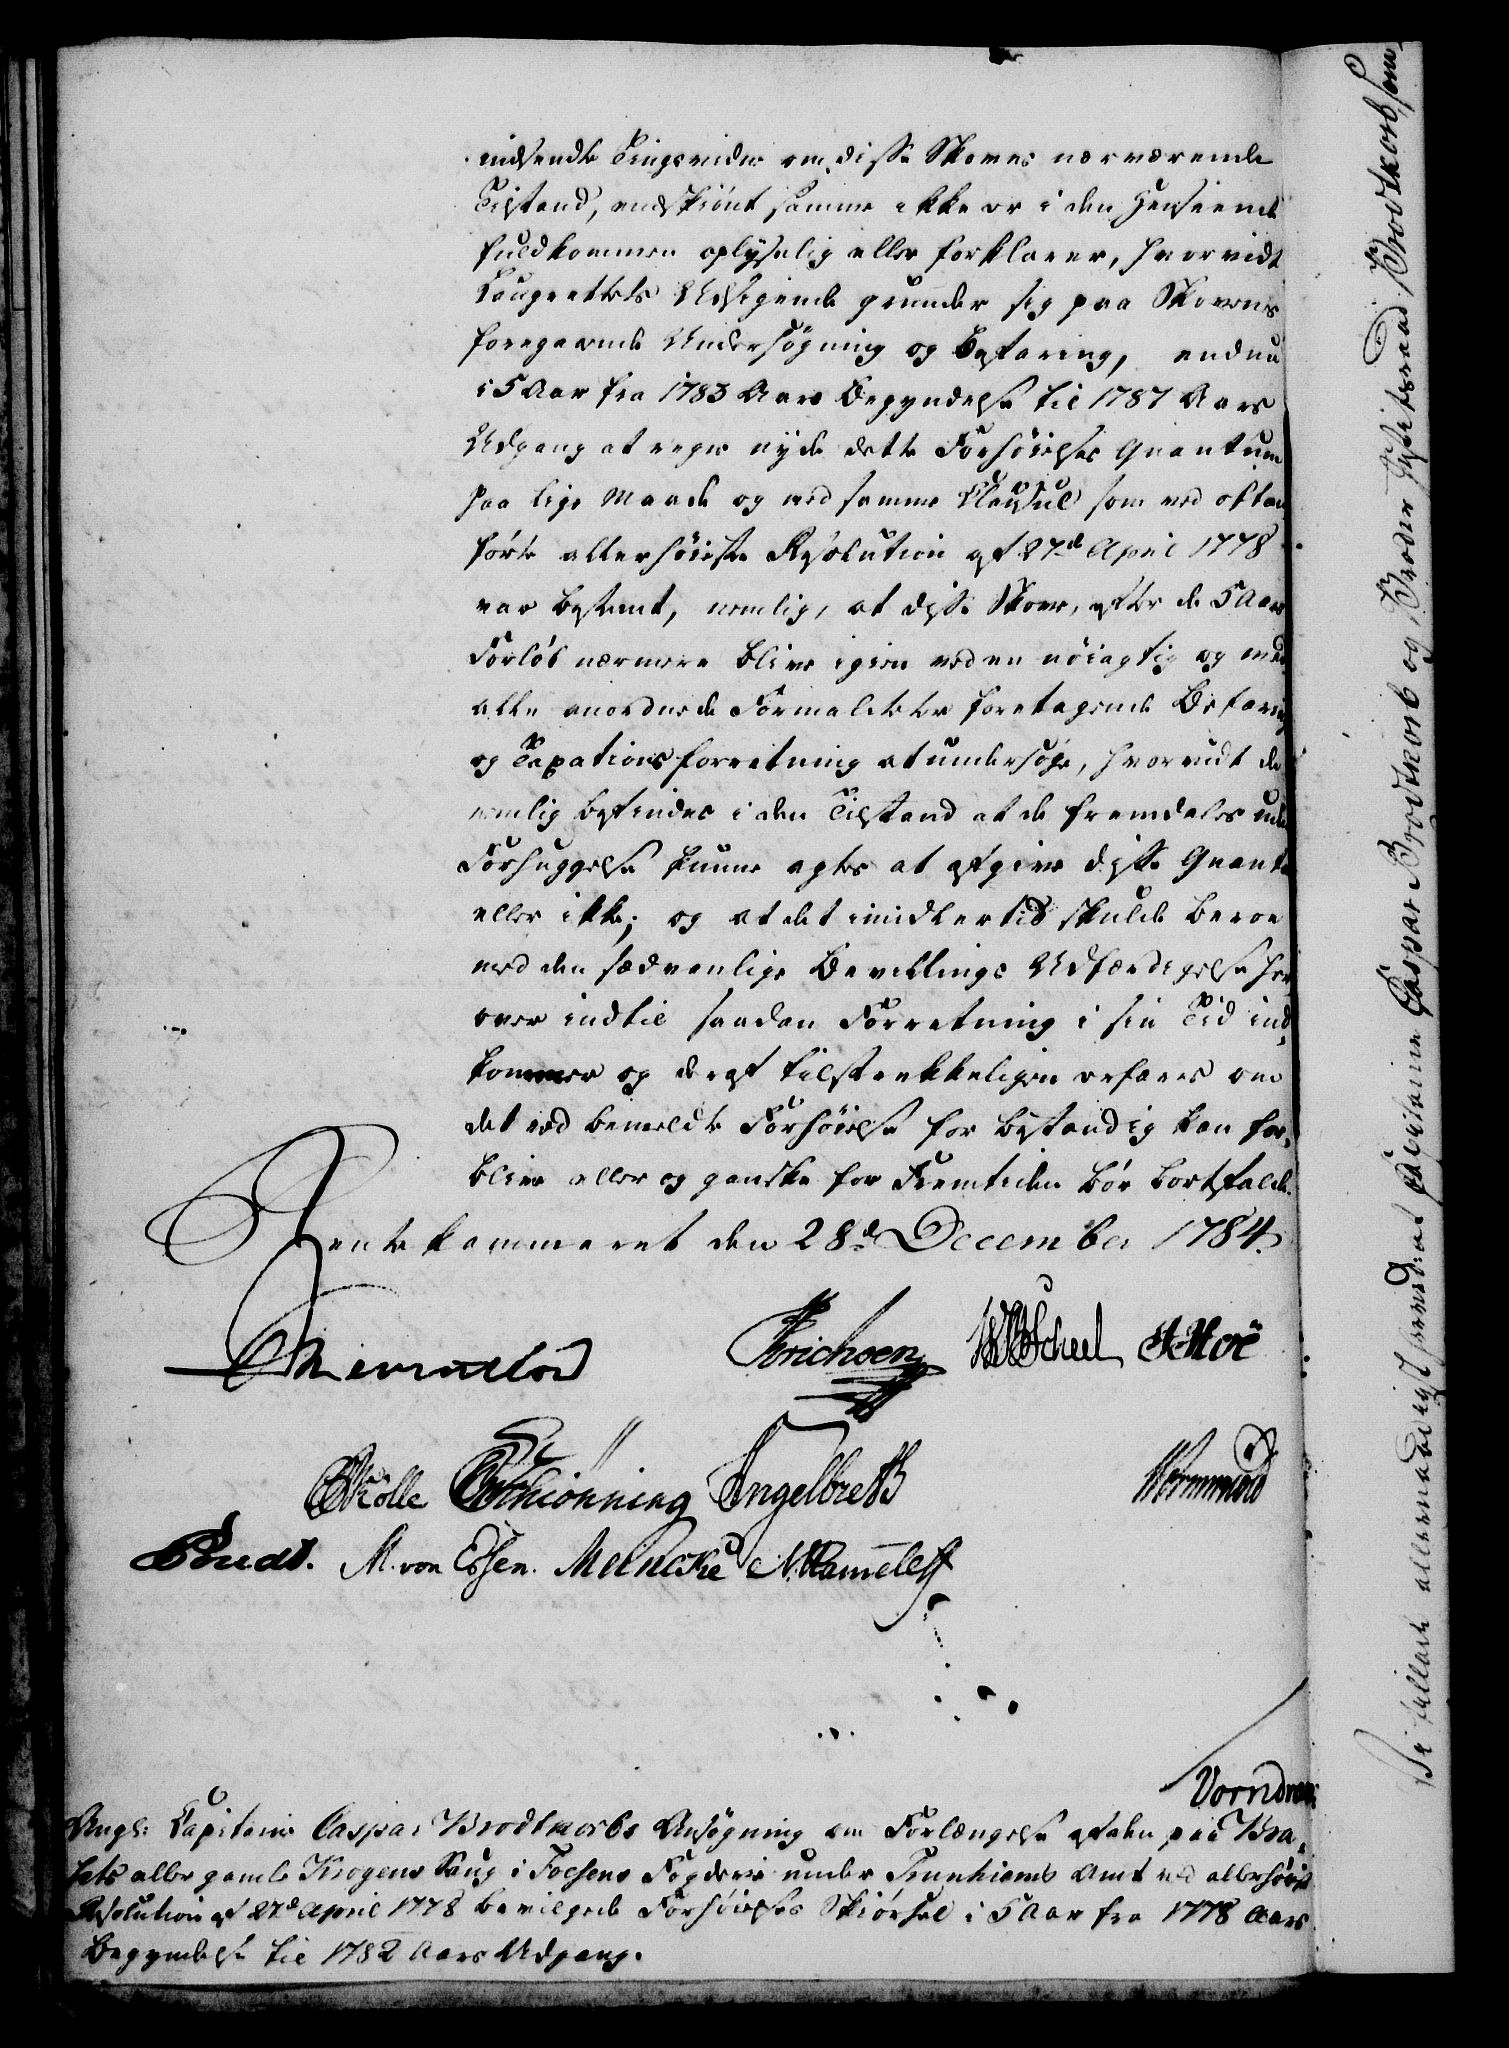 indsendte Tingsvidne om disse Skoves nærværende
Tilstand, endskiönt samme ikke er i den Henseende
fuldkommen oplyselig eller forklarer, hvorvidt
Laugrettets Udsigende grunder sig paa Skovens
foregaaende Undersøgning og Befaring, endnu
i 5 Aar fra 1783 Aars Begyndelse til 1787 Aars
Udgang at maae nyde dette Forhöielses Quantum
paa lige Maade og med samme Clausul som ved oftan
förte allerhöieste Resolution af 27de April 1778
var bestemt, nemlig, at disse Skove, efter de 5 Aars
Forlöb nærmere blive igien ved en nöiagtig og med
alle anordnede Formaliteter foretagende Befaring
og Taxations forretning at undersöge, hvorvidt de
nemlig befindes i den Tilstand at de fremdeles uden
Forhuggelse kunne agtes at afgive disse Quanta
eller ikke; og at det imidlertid skulde beroe
med den sædvanlige Bevillings Udfærdigelse her,
over indtil saadan Forretning i sin Tid ind,
kommer og deraf tilstrækkeligen erfares om
det ved bemeldte Forhöielse for bestandig kan for,
blive eller og ganske for Fremtiden bör bortfalde.
Rentekammeret den 28de December 1784.
Erichsen Scheel Hoë
Skolle Schiönning Engelbreth Wormskiold
M. von Essen. Meincke
Angl: Capitaine Caspar Brodtkorbs Ansögning om Forlængelse af den paa Bra,
kets eller gamle Krogens Saug i Fosens Fogderie under Trundhiems Amt ved allerhöieste
Resolution af 27de April 1778 bevilgede Forhöielses Skiörsel i 5 Aar fra 1778 Aars
Begyndelse til 1782 Aars Udgang.
allernaadigst Capitaine Caspar Brodtkorb og Broder Justitsraad Brodtkorb som